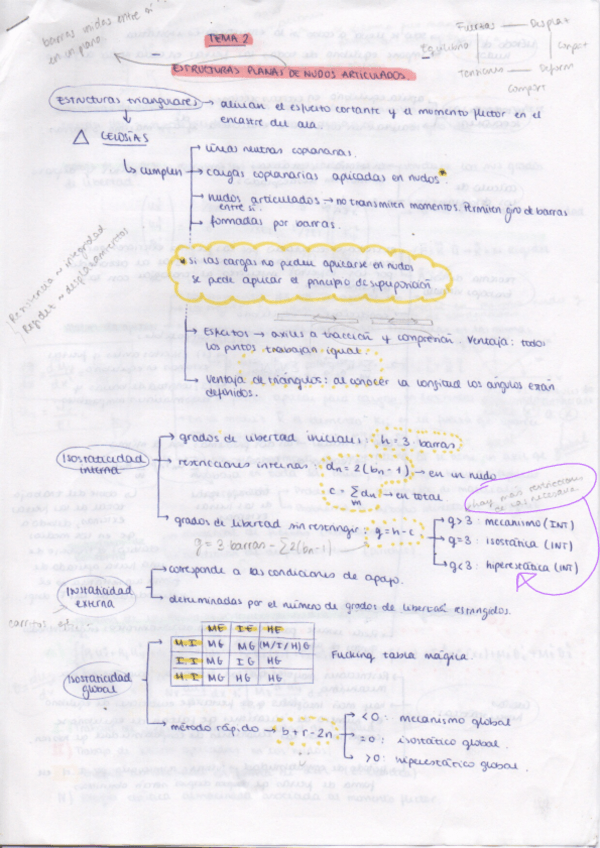 barras unidas entre sí
en un plano
TEMA 2
ESTRUCTURAS PLANAS DE NUDOS ARTICULADOS.
Fuerzas — Desplat
Equilibrio
Compat
Tensiones — Deform
Compart
Estructuras triangulares → alivian el esfuerzo cortante y el momento flector en el
encastre del ala.
△ CELOSÍAS
↳ cumplen
→ líneas neutras coplanarias.
→ cargas coplanarias aplicadas en nudos*.
→ nudos articulados → no transmiten momentos. Permiten giro de barras
entre sí.
→ formadas por barras.
Resistencia ~ integridad
Rigidez ~ desplazamientos
* si las cargas no pueden aplicarse en nudos
se puede aplicar el principio de superposición
→ Esfuerzos → axiles a tracción y compresión. Ventaja: todos
los puntos trabajan igual.
→ Ventaja de triángulos: al conocer la longitud los ángulos están
definidos.
Isostaticidad
interna
→ grados de libertad iniciales: h = 3 barras
→ restricciones internas: dn = 2(bn-1) → en un nudo
c = Σ dn → en total
m
→ grados de libertad sin restringir: g = h - c
g = 3 barras - Σ2(bn-1)
hay más restricciones
de las necesarias
→ g>3: mecanismo (INT)
→ g=3: isostática (INT)
→ g<3: hiperestática (INT)
Isostaticidad
externa
→ corresponde a las condiciones de apoyo.
→ determinadas por el número de grados de libertad restringidos.
ME IE HE
M.I MG MG (M/I/H)G
I.I MG IG HG
H.I MG HG HG
Fucking tabla mágica
Isostaticidad
global
→ método rápido → b + r - 2n
→ <0: mecanismo global
→ =0: isostático global.
→ >0: hiperestático global.